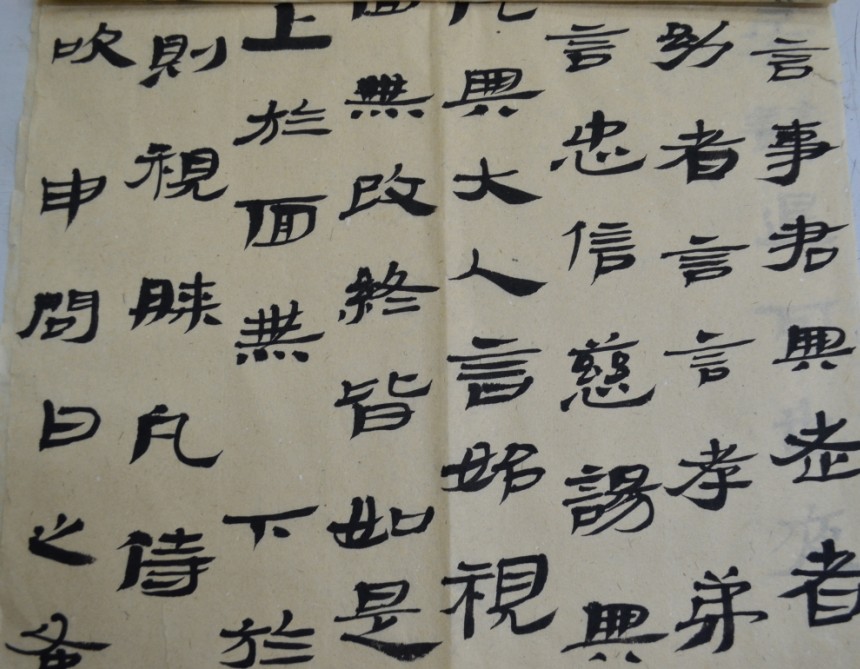 言事君與老者
幼者言言孝弟
言忠信慈諹與
凡與大人言始視
面無改終皆如是
上於面無下於
則視膝凡侍
吹申問日之